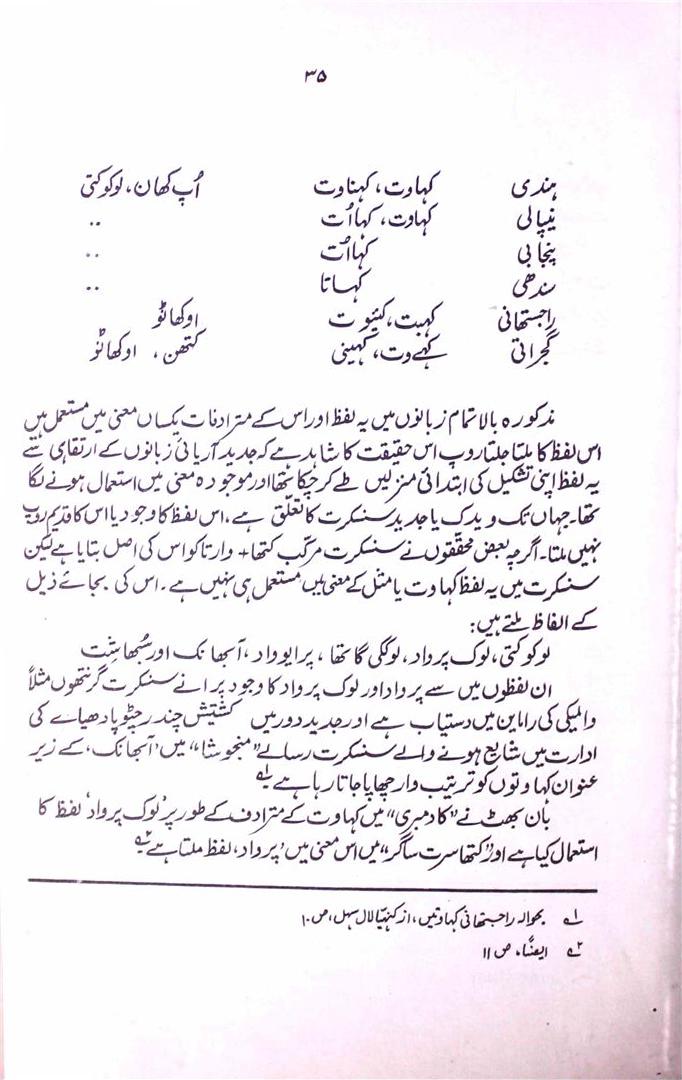 ۳۵
ہندی کہاوت، کہناوت اُپ کھان، لوکوکتی
نیپالی کہاوت، کہااُت ..
پنجابی کہااُت ..
سندھی کہاتا ..
راجستھانی کہبت، کیئوت اوکھانُو
گجراتی کہےوت، کہینی کتھن، اوکھانُو
مذکورہ بالا تمام زبانوں میں یہ لفظ اور اس کے مترادفات یکساں معنی میں مستعمل ہیں
اس لفظ کا ملتا جلتا روپ اس حقیقت کا شاہد ہے کہ جدید آریائی زبانوں کے ارتقا ہی سے
یہ لفظ اپنی تشکیل کی ابتدائی منزلیں طے کر چکا تھا اور موجودہ معنی میں استعمال ہونے لگا
تھا۔ جہاں تک ویدک یا جدید سنسکرت کا تعلّق ہے، اس لفظ کا وجود یا اس کا قدیم روپ
نہیں ملتا۔ اگرچہ بعض محققوں نے سنسکرت مرکّب کتھا + وارتا کو اس کی اصل بتایا ہے لیکن
سنسکرت میں یہ لفظ کہاوت یا مثل کے معنی میں مستعمل ہی نہیں ہے۔ اس کی بجائے ذیل
کے الفاظ ملتے ہیں:
لوکوکتی، لوک پرواد، لوککی گاتھا، پرایوواد، آبھانک اور سُبھاشت
ان لفظوں میں سے پرواد اور لوک پرواد کا وجود پرانے سنسکرت گرنتھوں مثلاً
والمیکی کی راماین میں دستیاب ہے اور جدید دور میں کشتیش چندر چٹوپادھیاے کی
ادارت میں شایع ہونے والے سنسکرت رسالے ”منجوشا“ میں ’آبھانک‘ کے زیر
عنوان کہاوتوں کو ترتیب وار چھاپا جاتا رہا ہے ؎۱
بان بھٹ نے ”کادمبری“ میں کہاوت کے مترادف کے طور پر ’لوک پرواد‘ لفظ کا
استعمال کیا ہے اور ”کتھا سرت ساگر“ میں اس معنی میں ’پرواد‘ لفظ ملتا ہے ؎۲
؎۱ بحوالہ راجستھانی کہاوتیں، از کنہیّا لال سہل، ص ۱۰
؎۲ ایضاً، ص ۱۱